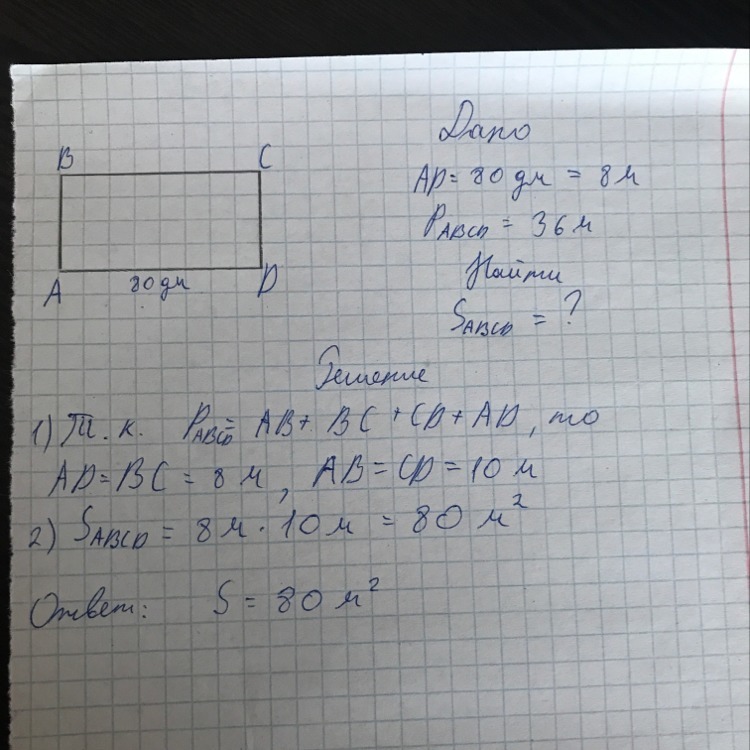 Дано
B C
AD = 80 дм = 8 м
P ABCD = 36 м
Найти
A 80 дм D
S ABCD = ?
Решение
1) Т. к. P ABCD = AB + BC + CD + AD, то
AD = BC = 8 м, AB = CD = 10 м
2) S ABCD = 8 м · 10 м = 80 м²
Ответ: S = 80 м²